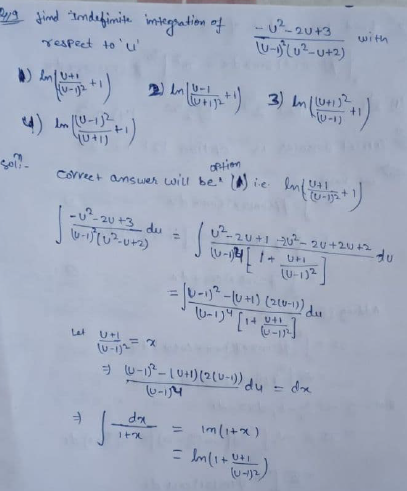 find indefinite integration of (-u²-2u+3)/((u-1)³(u²-u+2)) with
respect to 'u'
1) ln|(u+1)/(u-1)² + 1| 2) ln|(u-1)/(u+1)² + 1| 3) ln|(u+1)²/(u-1) + 1|
4) ln|(u-1)²/(u+1) + 1|
Solⁿ:-
option
correct answer will be (1) i.e ln(|(u+1)/(u-1)² + 1|)
∫ (-u²-2u+3)/((u-1)³(u²-u+2)) du = ∫ (u²-2u+1-2u²-2u+2u+2)/((u-1)⁴[1+(u+1)/(u-1)²]) du
= ∫ ((u-1)²-(u+1)(2(u-1)))/((u-1)⁴[1+(u+1)/(u-1)²]) du
let (u+1)/(u-1)² = x
⇒ ((u-1)²-(u+1)(2(u-1)))/(u-1)⁴ du = dx
⇒ ∫ dx/(1+x) = ln(1+x)
= ln(1+(u+1)/(u-1)²)